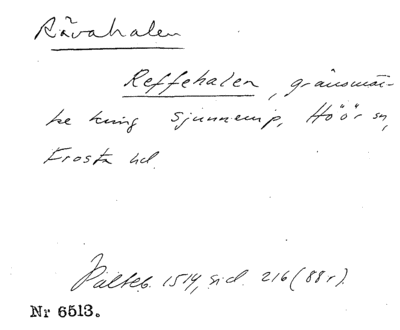 Rävahalen
Reffehalen, gränsmär-
ke kring Sjunnerup, Höör sn,
Frosta hd.
Pälteb. 1514, sid. 216 (88 r).
Nr 6513.